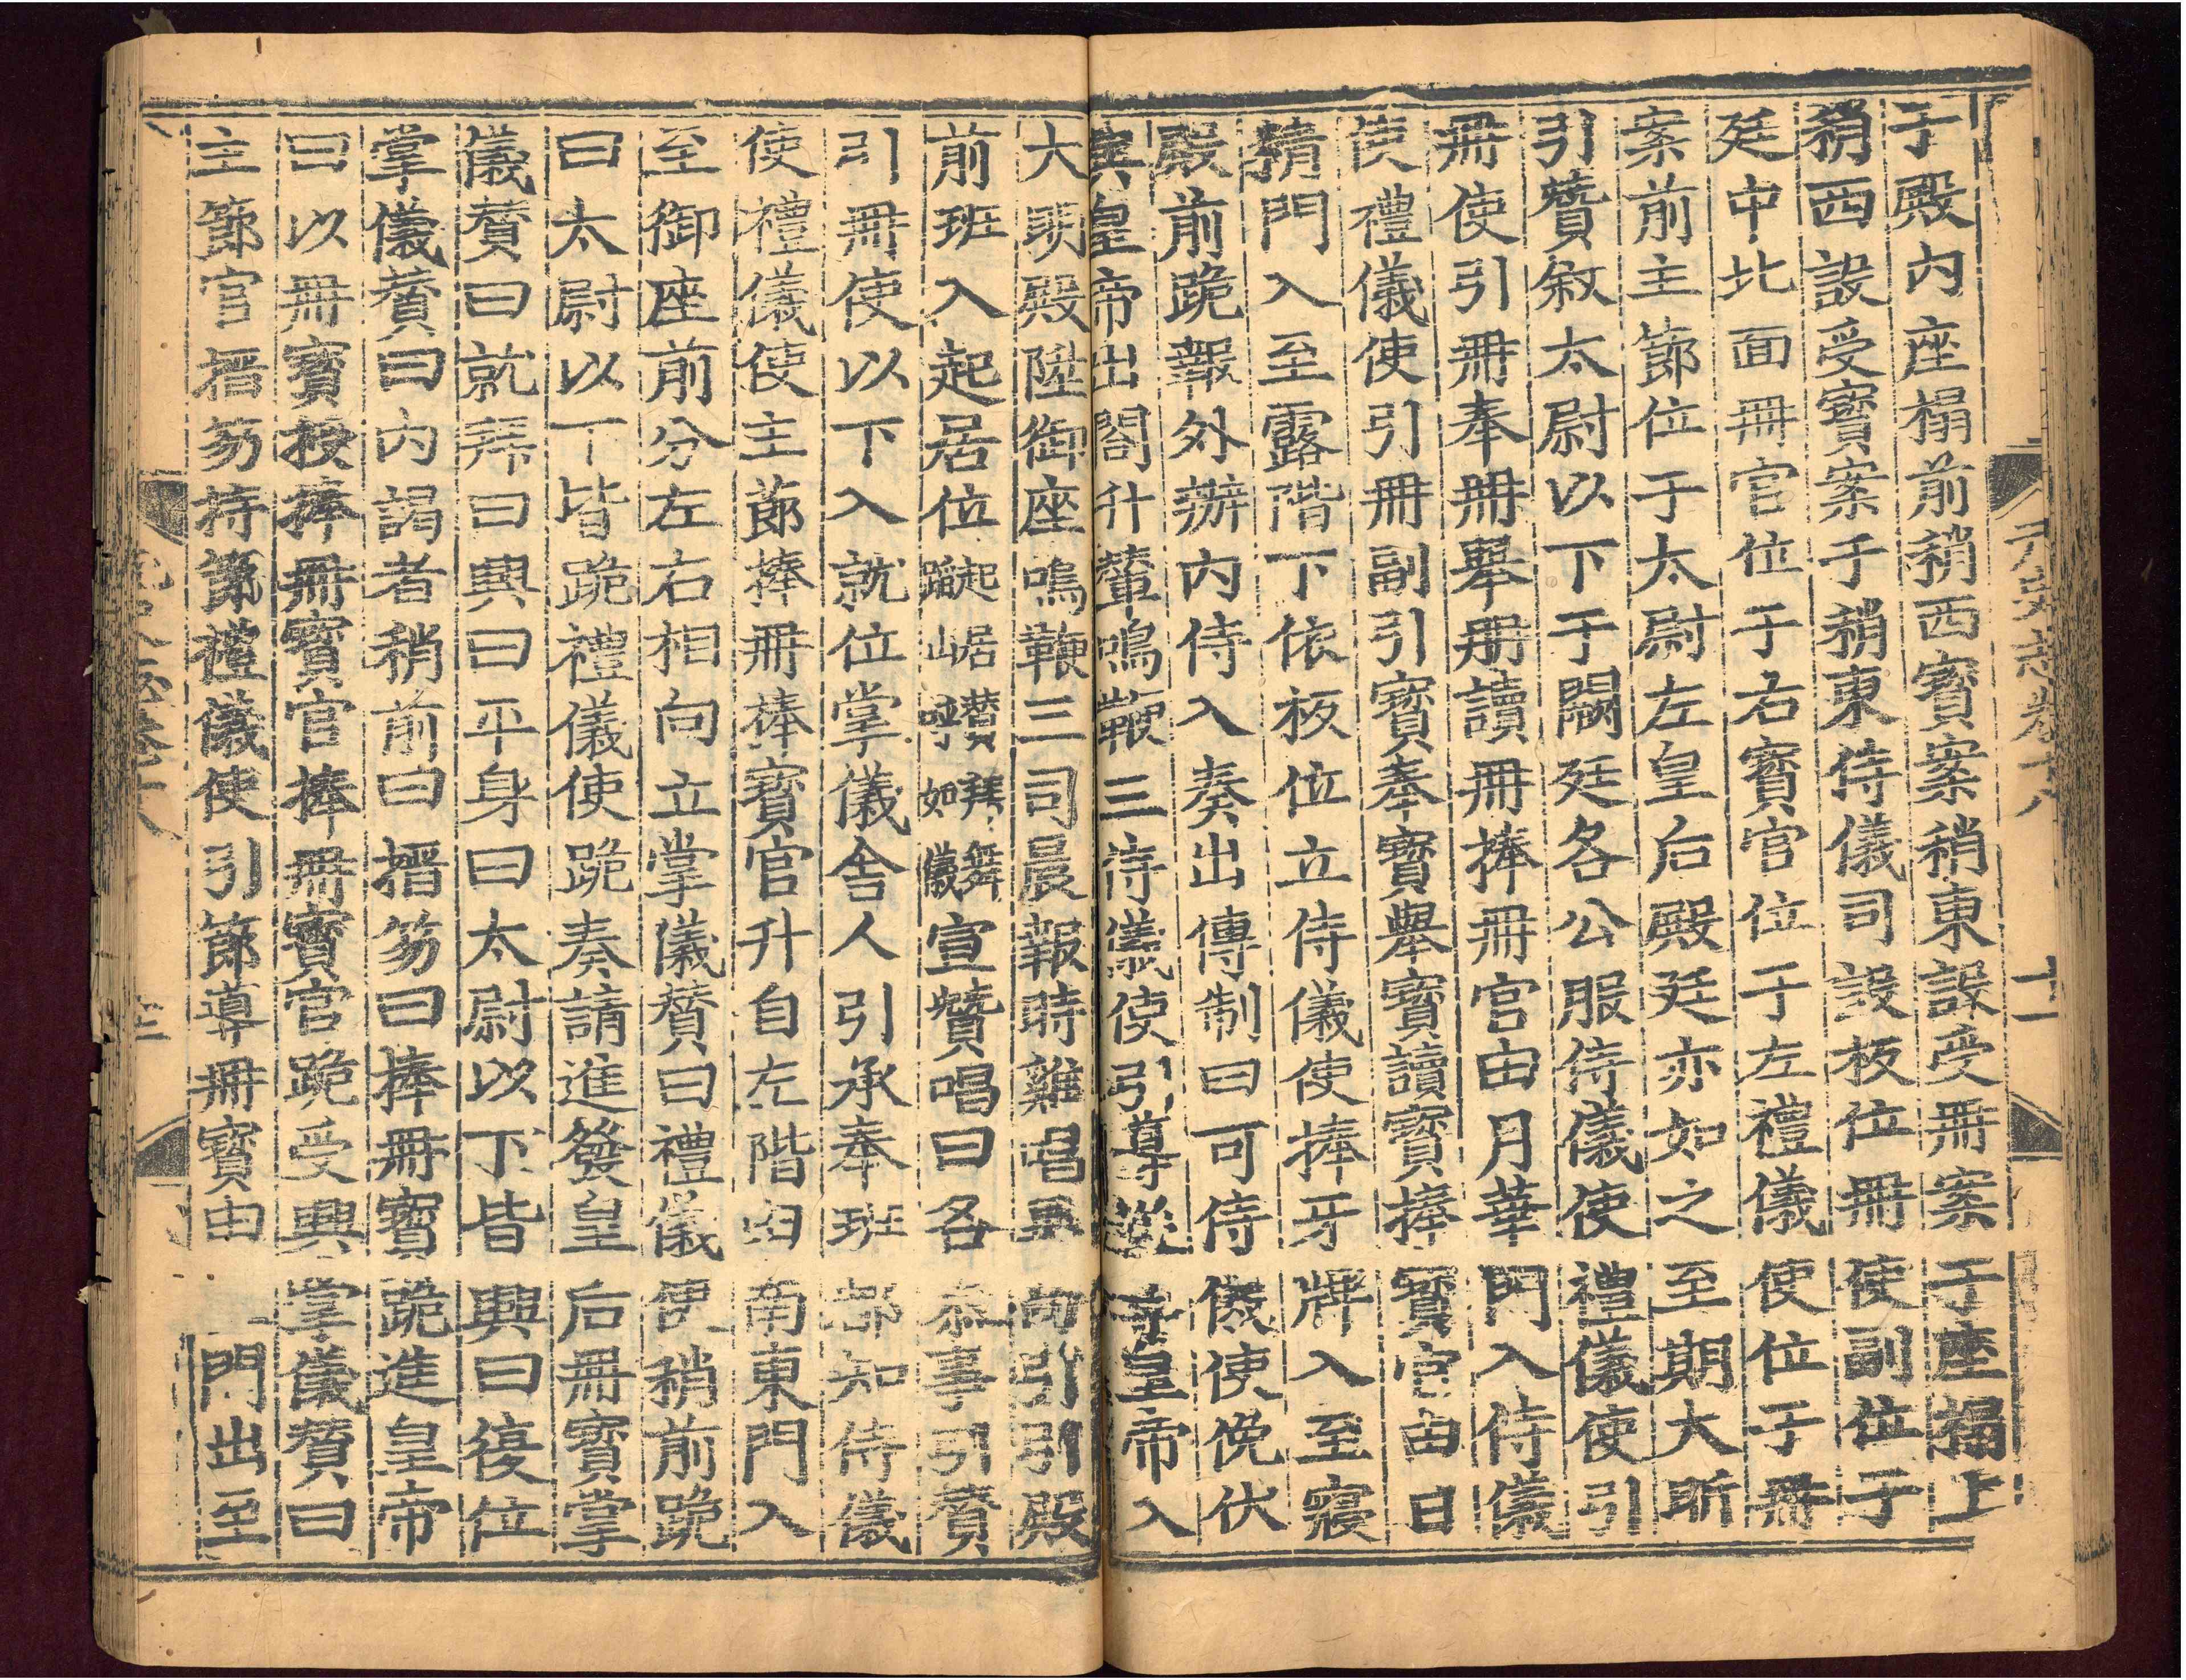 于殿内座榻前稍西寳案稍東設受冊案于座榻上
稍西設受寳案于稍東侍儀司設板位冊使副位于
廷中北面冊官位于右寳官位于左禮儀使位于冊
案前主節位于太尉左皇后殿廷亦如之至期大昕
引贊敘太尉以下于闕廷各公服侍儀使禮儀使引
冊使引冊奉冊舉冊讀冊捧冊官由月華門入侍儀
使禮儀使引冊副引寳奉寳舉寳讀寳捧寳官由日
精門入至露階下依板位立侍儀使捧牙牌入至寢
殿前跪報外辦内侍入奏出傳制曰可侍儀使俛伏
興皇帝出閤升輦鳴鞭三侍儀使引導從皇帝入
大明殿陞御座鳴鞭三司晨報時雞唱畢引引殿
前班入起居位起居贊拜舞蹈山呼如儀宣贊唱曰各恭事引贊
引冊使以下入就位掌儀舍人引承奉班都知侍儀
使禮儀使主節捧冊捧寳官升自左階由南東門入
至御座前分左右相向立掌儀贊曰禮儀使稍前跪
曰太尉以下皆跪禮儀使跪奏請進發皇后冊寳掌
儀贊曰就拜曰興曰平身曰太尉以下皆興曰復位
掌儀贊曰内謁者稍前曰搢笏曰捧冊寳跪進皇帝
曰以冊寳授捧冊寳官捧冊寳官跪受興掌儀贊曰
主節官搢笏持節禮儀使引節導冊寳由門出至
元史志卷十八
十一